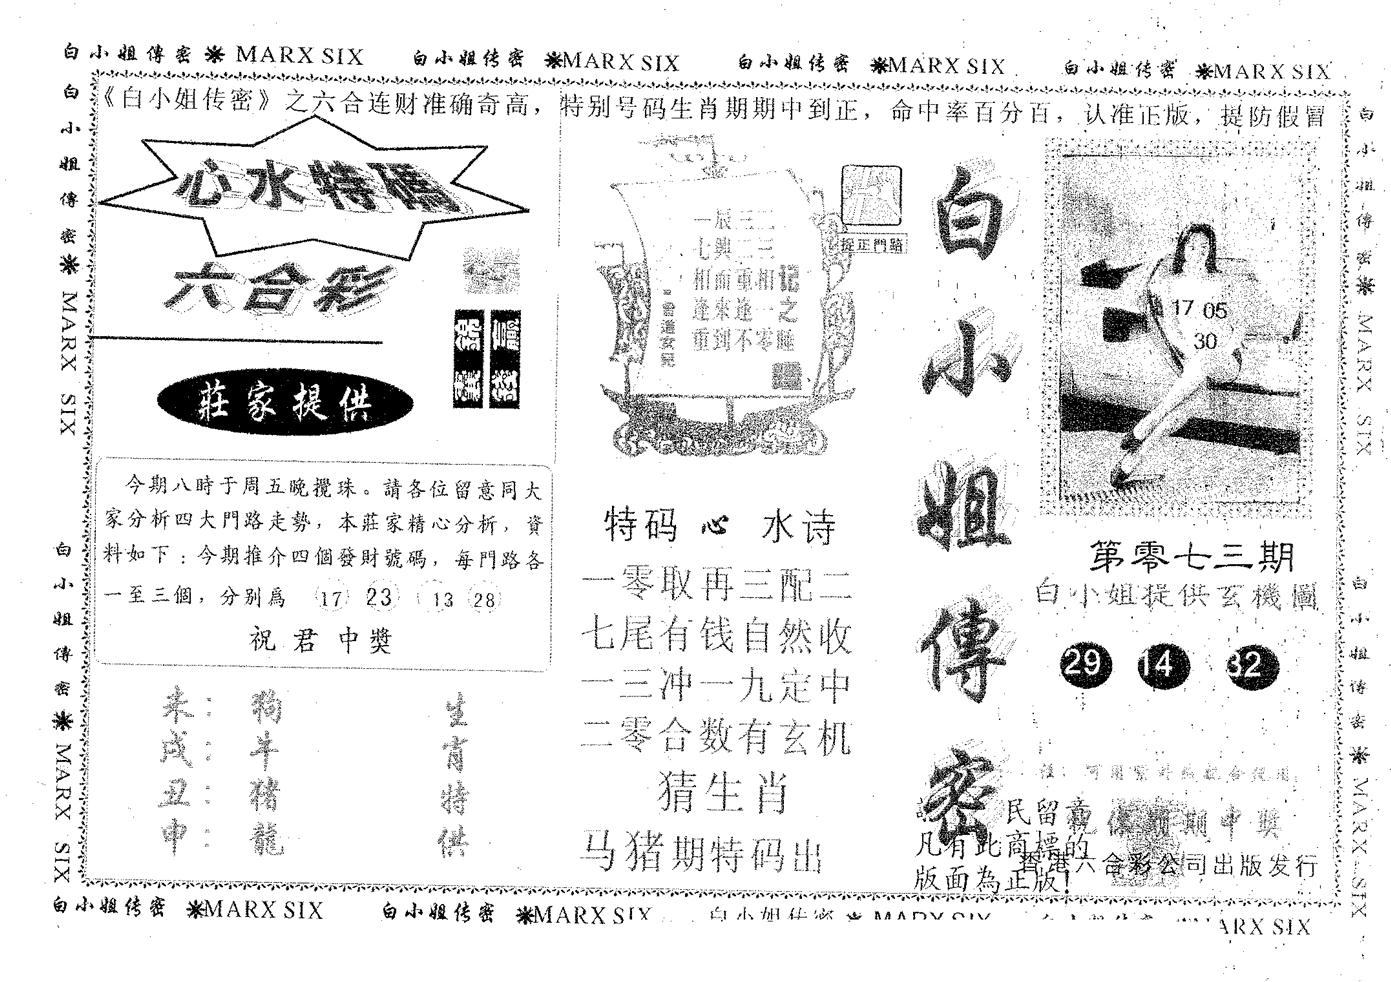 白小姐傳密 ❋ MARX SIX 白小姐传密 ❋MARX SIX 白小姐传密 ❋MARX SIX 白小姐传密 ❋MARX SIX
《白小姐传密》之六合连财准确奇高，特别号码生肖期期中到正，命中率百分百，认准正版，提防假冒
白小姐傳密 ❋ MARX SIX
白小姐傳密 ❋ MARX SIX
心水特碼
六合彩
莊家提供
今期八時于周五晚攪珠。請各位留意同大
家分析四大門路走勢，本莊家精心分析，資
料如下：今期推介四個發財號碼，每門路各
一至三個，分别爲 17 23 13 28
祝君中獎
未：狗 生
戌：牛 肖
丑：猪 特
申：龍 供
一辰三二
七興二三
相面重相记
逢來逢一之
重到不零睡
捉正門路
特码心水诗
一零取再三配二
七尾有钱自然收
一三冲一九定中
二零合数有玄机
猜生肖
马猪期特码出
白小姐傳密
民留意
凡有此商標的
版面為正版!
17 05
30
第零七三期
白小姐提供玄機圖
29 14 32
祝你期期中獎
香港六合彩公司出版发行
白小姐傳密 ❋ MARX SIX
白小姐传密 ❋ MARX SIX
白小姐传密 ❋MARX SIX 白小姐传密 ❋MARX SIX 白小姐传密 ❋ MARX SIX ARX SIX